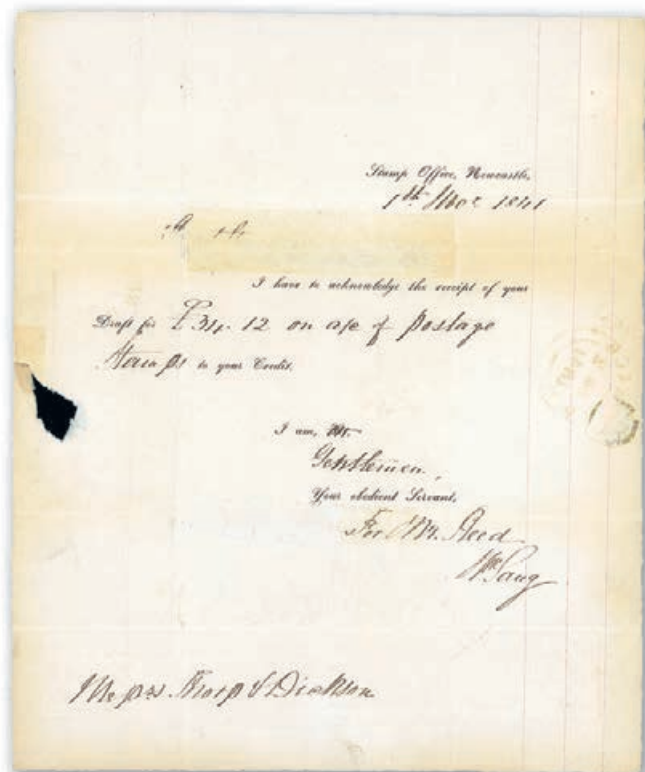 Stamp Office, Newcastle,
1st Mar 1841
I have to acknowledge the receipt of your
Draft for £34. 12 on a/c of Postage
Stamps to your Credit.
I am,
Gentlemen,
Your obedient Servant,
For Mr. Reed
Messrs Thorp & Dickson